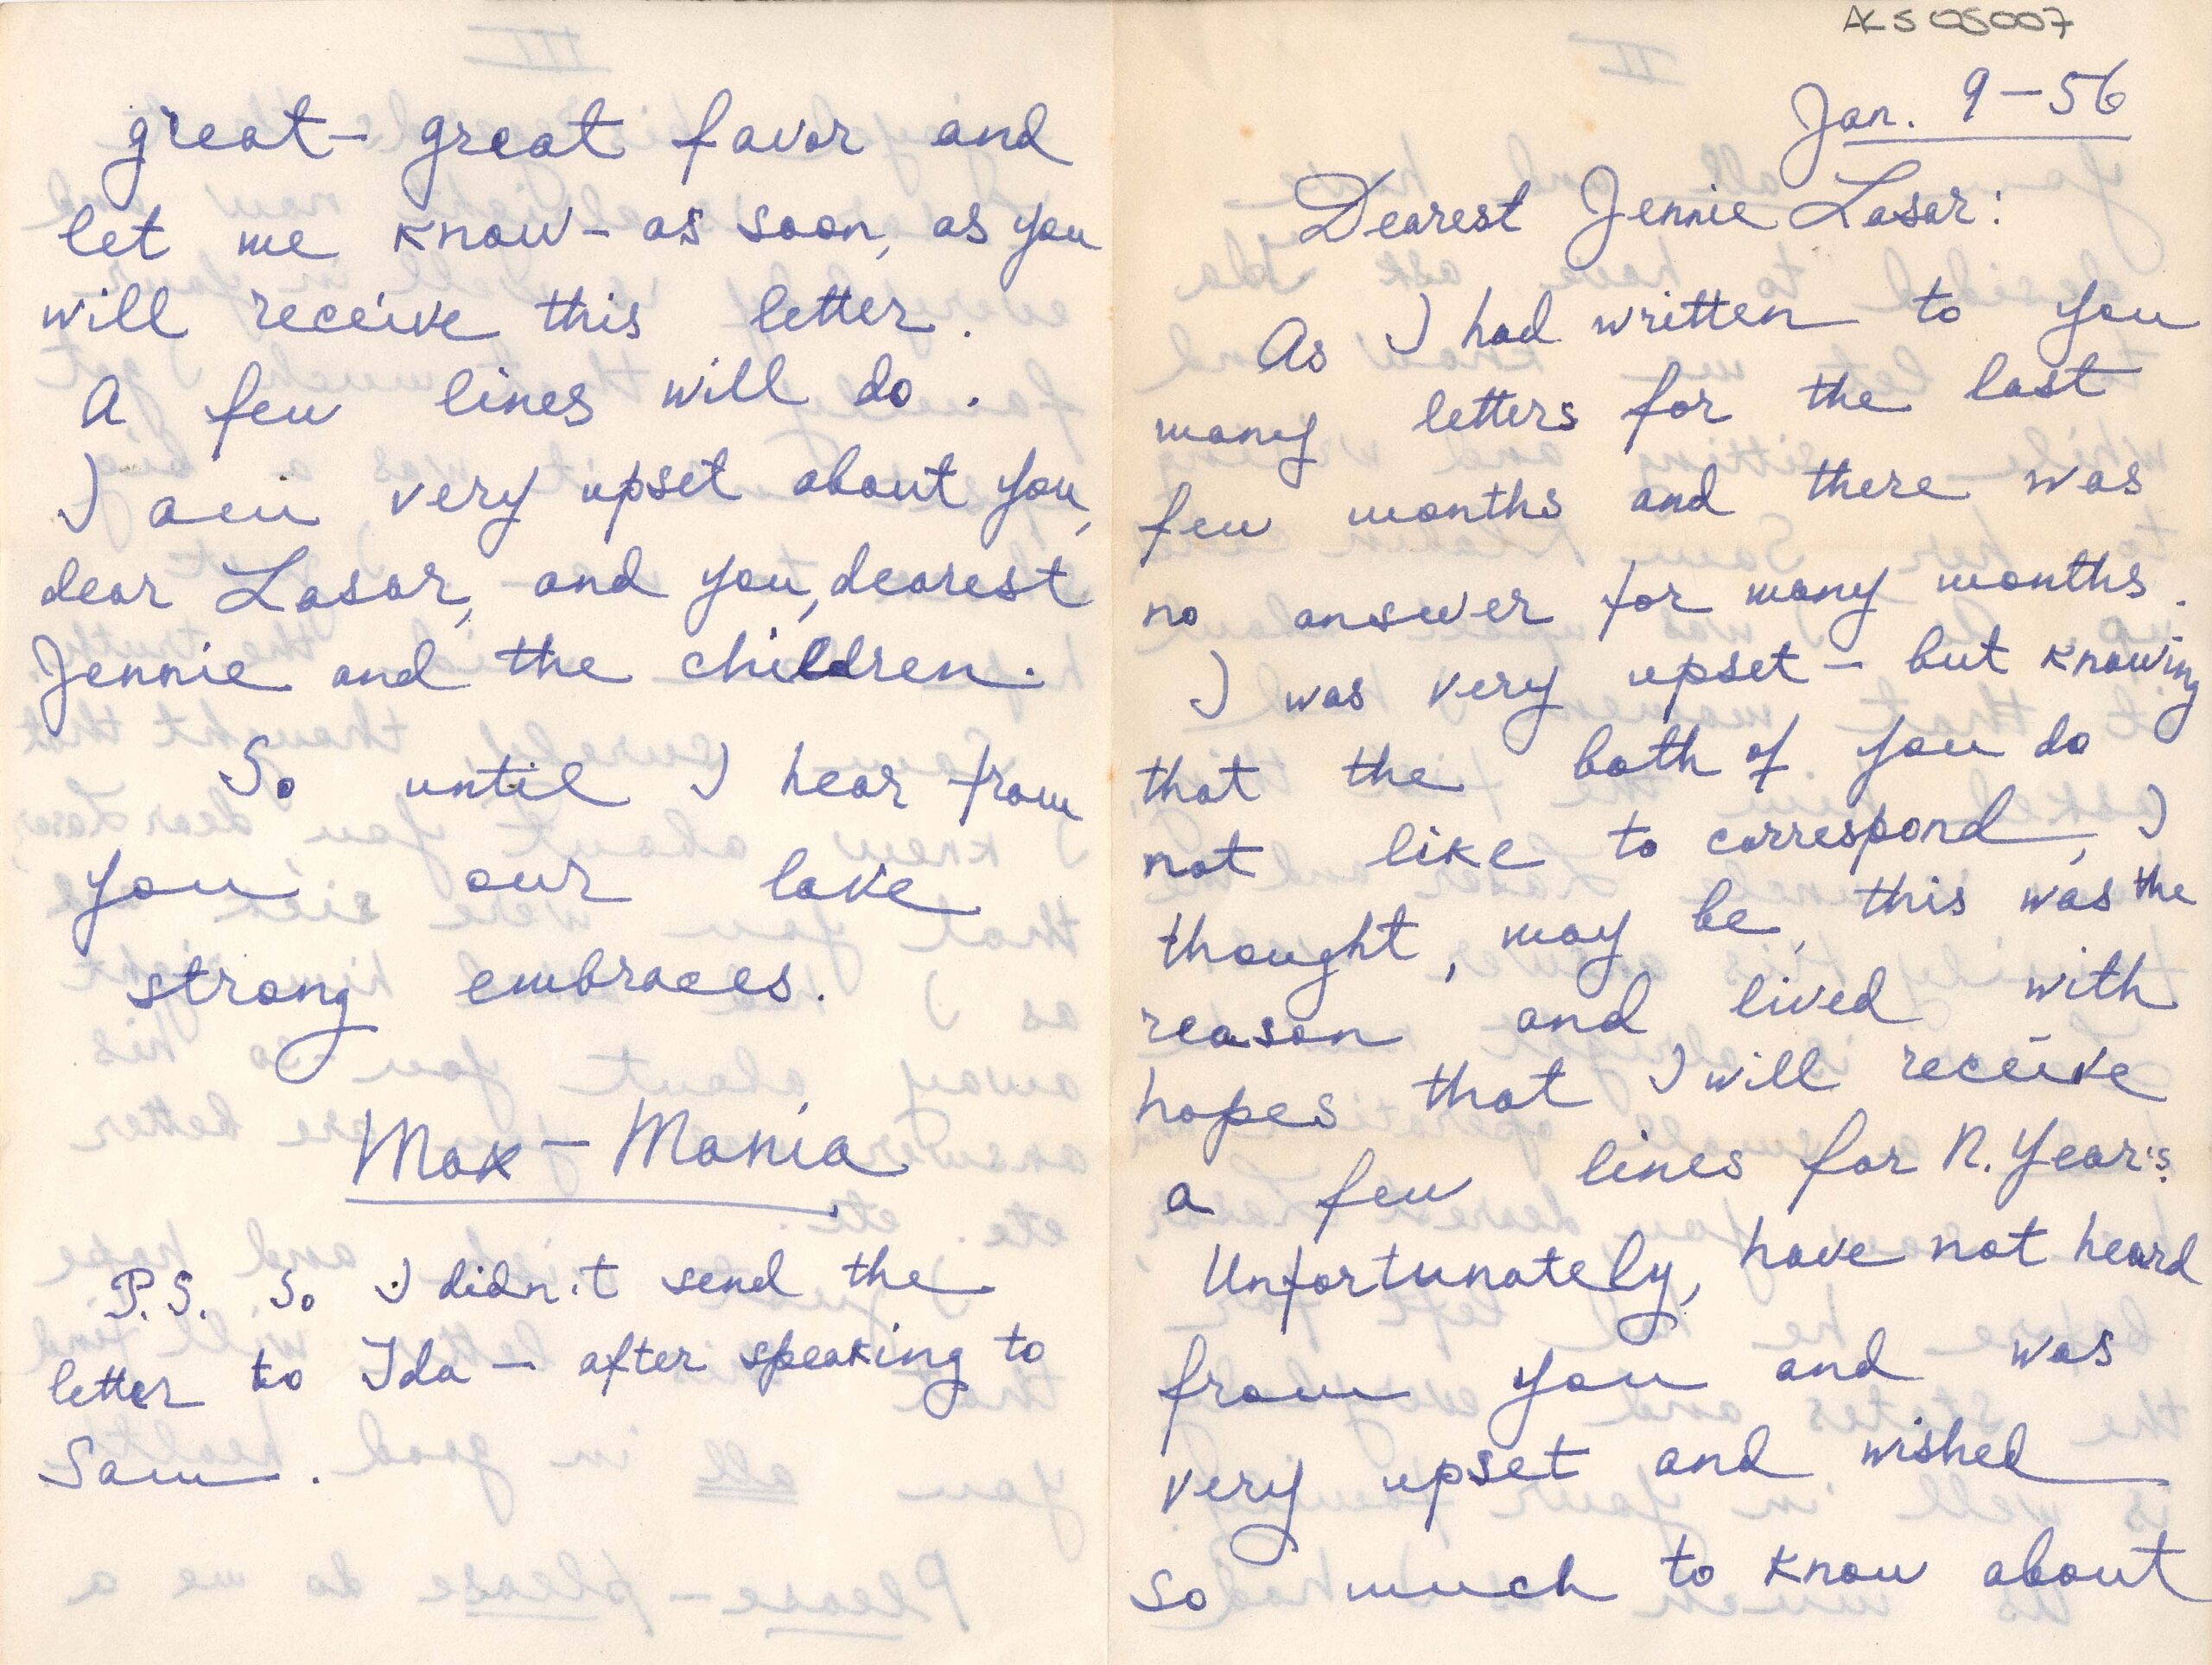 ALS 05007
Jan. 9-56
Dearest Jennie Lasar:
As I had written to you
many letters for the last
few months and there was
no answer for many months.
I was very upset - but knowing
that the both of you do
not like to correspond, I
thought, may be, this was the
reason and lived with
hopes that I will receive
a few lines for N. Year's.
Unfortunately, have not heard
from you and was
very upset and wished
so much to know about
great- great favor and
let me know - as soon, as you
will receive this letter.
A few lines will do.
I am very upset about you,
dear Lasar, and you, dearest
Jennie and the children.
So until I hear from
you our love
strong embraces.
Max - Mania
P.S. So I didn't send the
letter to Ida - after speaking to
Sam.